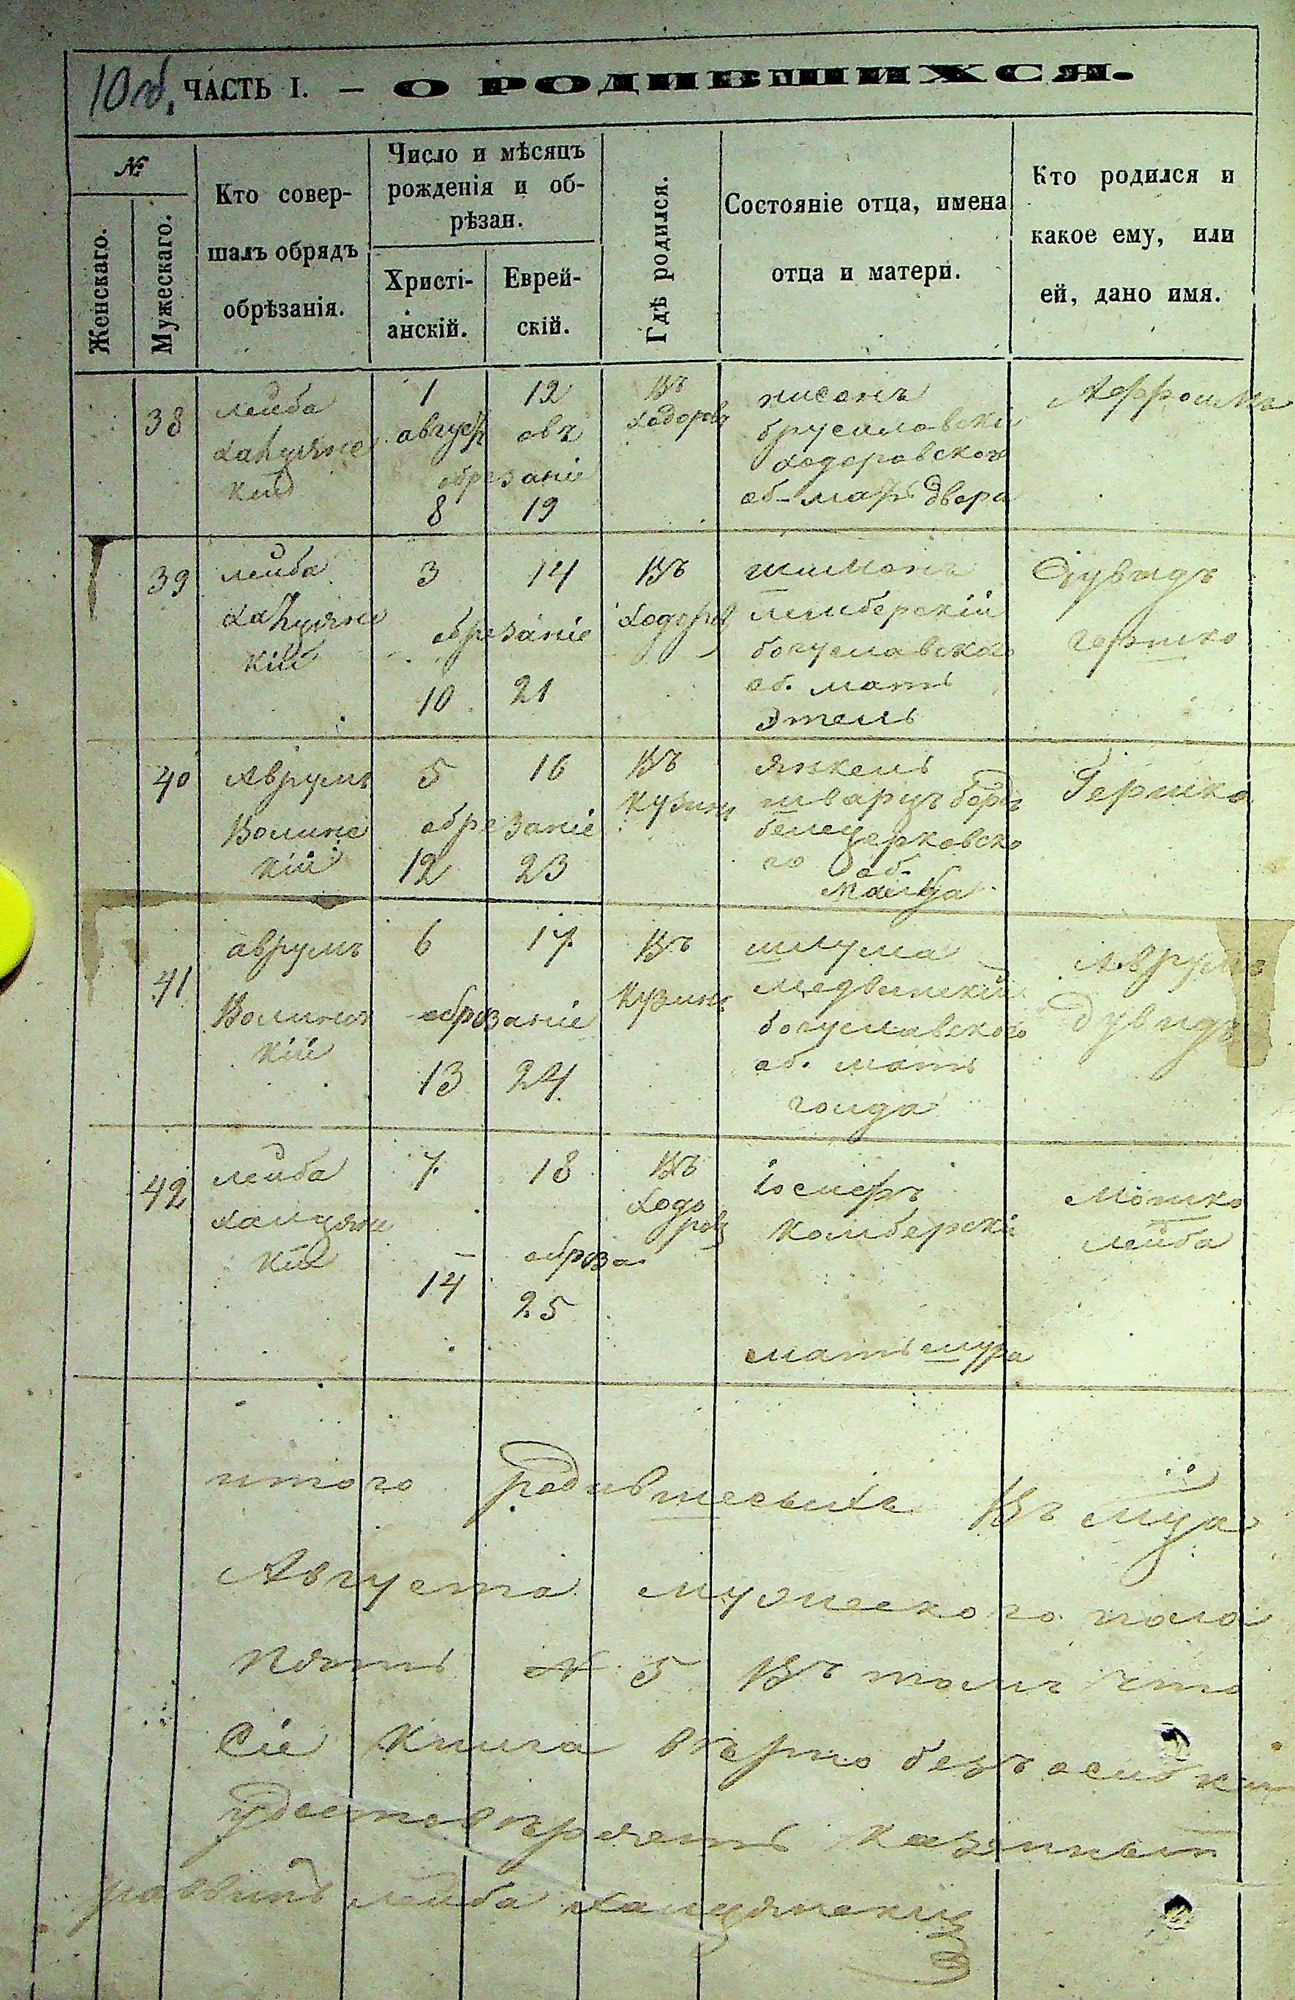 10 об. ЧАСТЬ I. — О РОДИВШИХСЯ.
№
Женскаго.
Мужескаго.
Кто совер-
шалъ обрядъ
обрѣзанія.
Число и мѣсяцъ
рожденія и об-
рѣзан.
Христі-
анскій.
Еврей-
скій.
Гдѣ родился.
Состояніе отца, имена
отца и матери.
Кто родился и
какое ему, или
ей, дано имя.
38
лейба
кій
1
август
обрезаніе
8
12
авъ
19
Въ
Ходоров
нисонъ
брусиловскі
ходоровского
об- мать двера
39
лейба
кій
3
обрезаніе
10
14
21
Въ
Ходоров
шимонъ
лемберскій
богуславского
об. мать
Этель
Дувидъ
гершко
40
Аврумъ
Волинс
кій
5
обрезаніе
12
16
23
Въ
Кузми
Янкель
шварцъ берг
белецерковско
го об.
Гершко
41
аврумъ
Волинс
кій
6
обрезаніе
13
17
24
Въ
Кузми
шлума
медвинскій
богуславского
об. мать
голда
Аврумъ
Дувидъ
42
лейба
кій
7
14
18
обреза
25
Въ
Ходо
ров
Іосифъ
Комберскі
мать шура
Мошко
лейба
итого родившесыхъ Въ мца
Августа мужеского пола
Пять № 5 Въ томъ что
Сіе Книга вѣрно безъ
удостовѣряетъ Казенный
раввинъ лейба